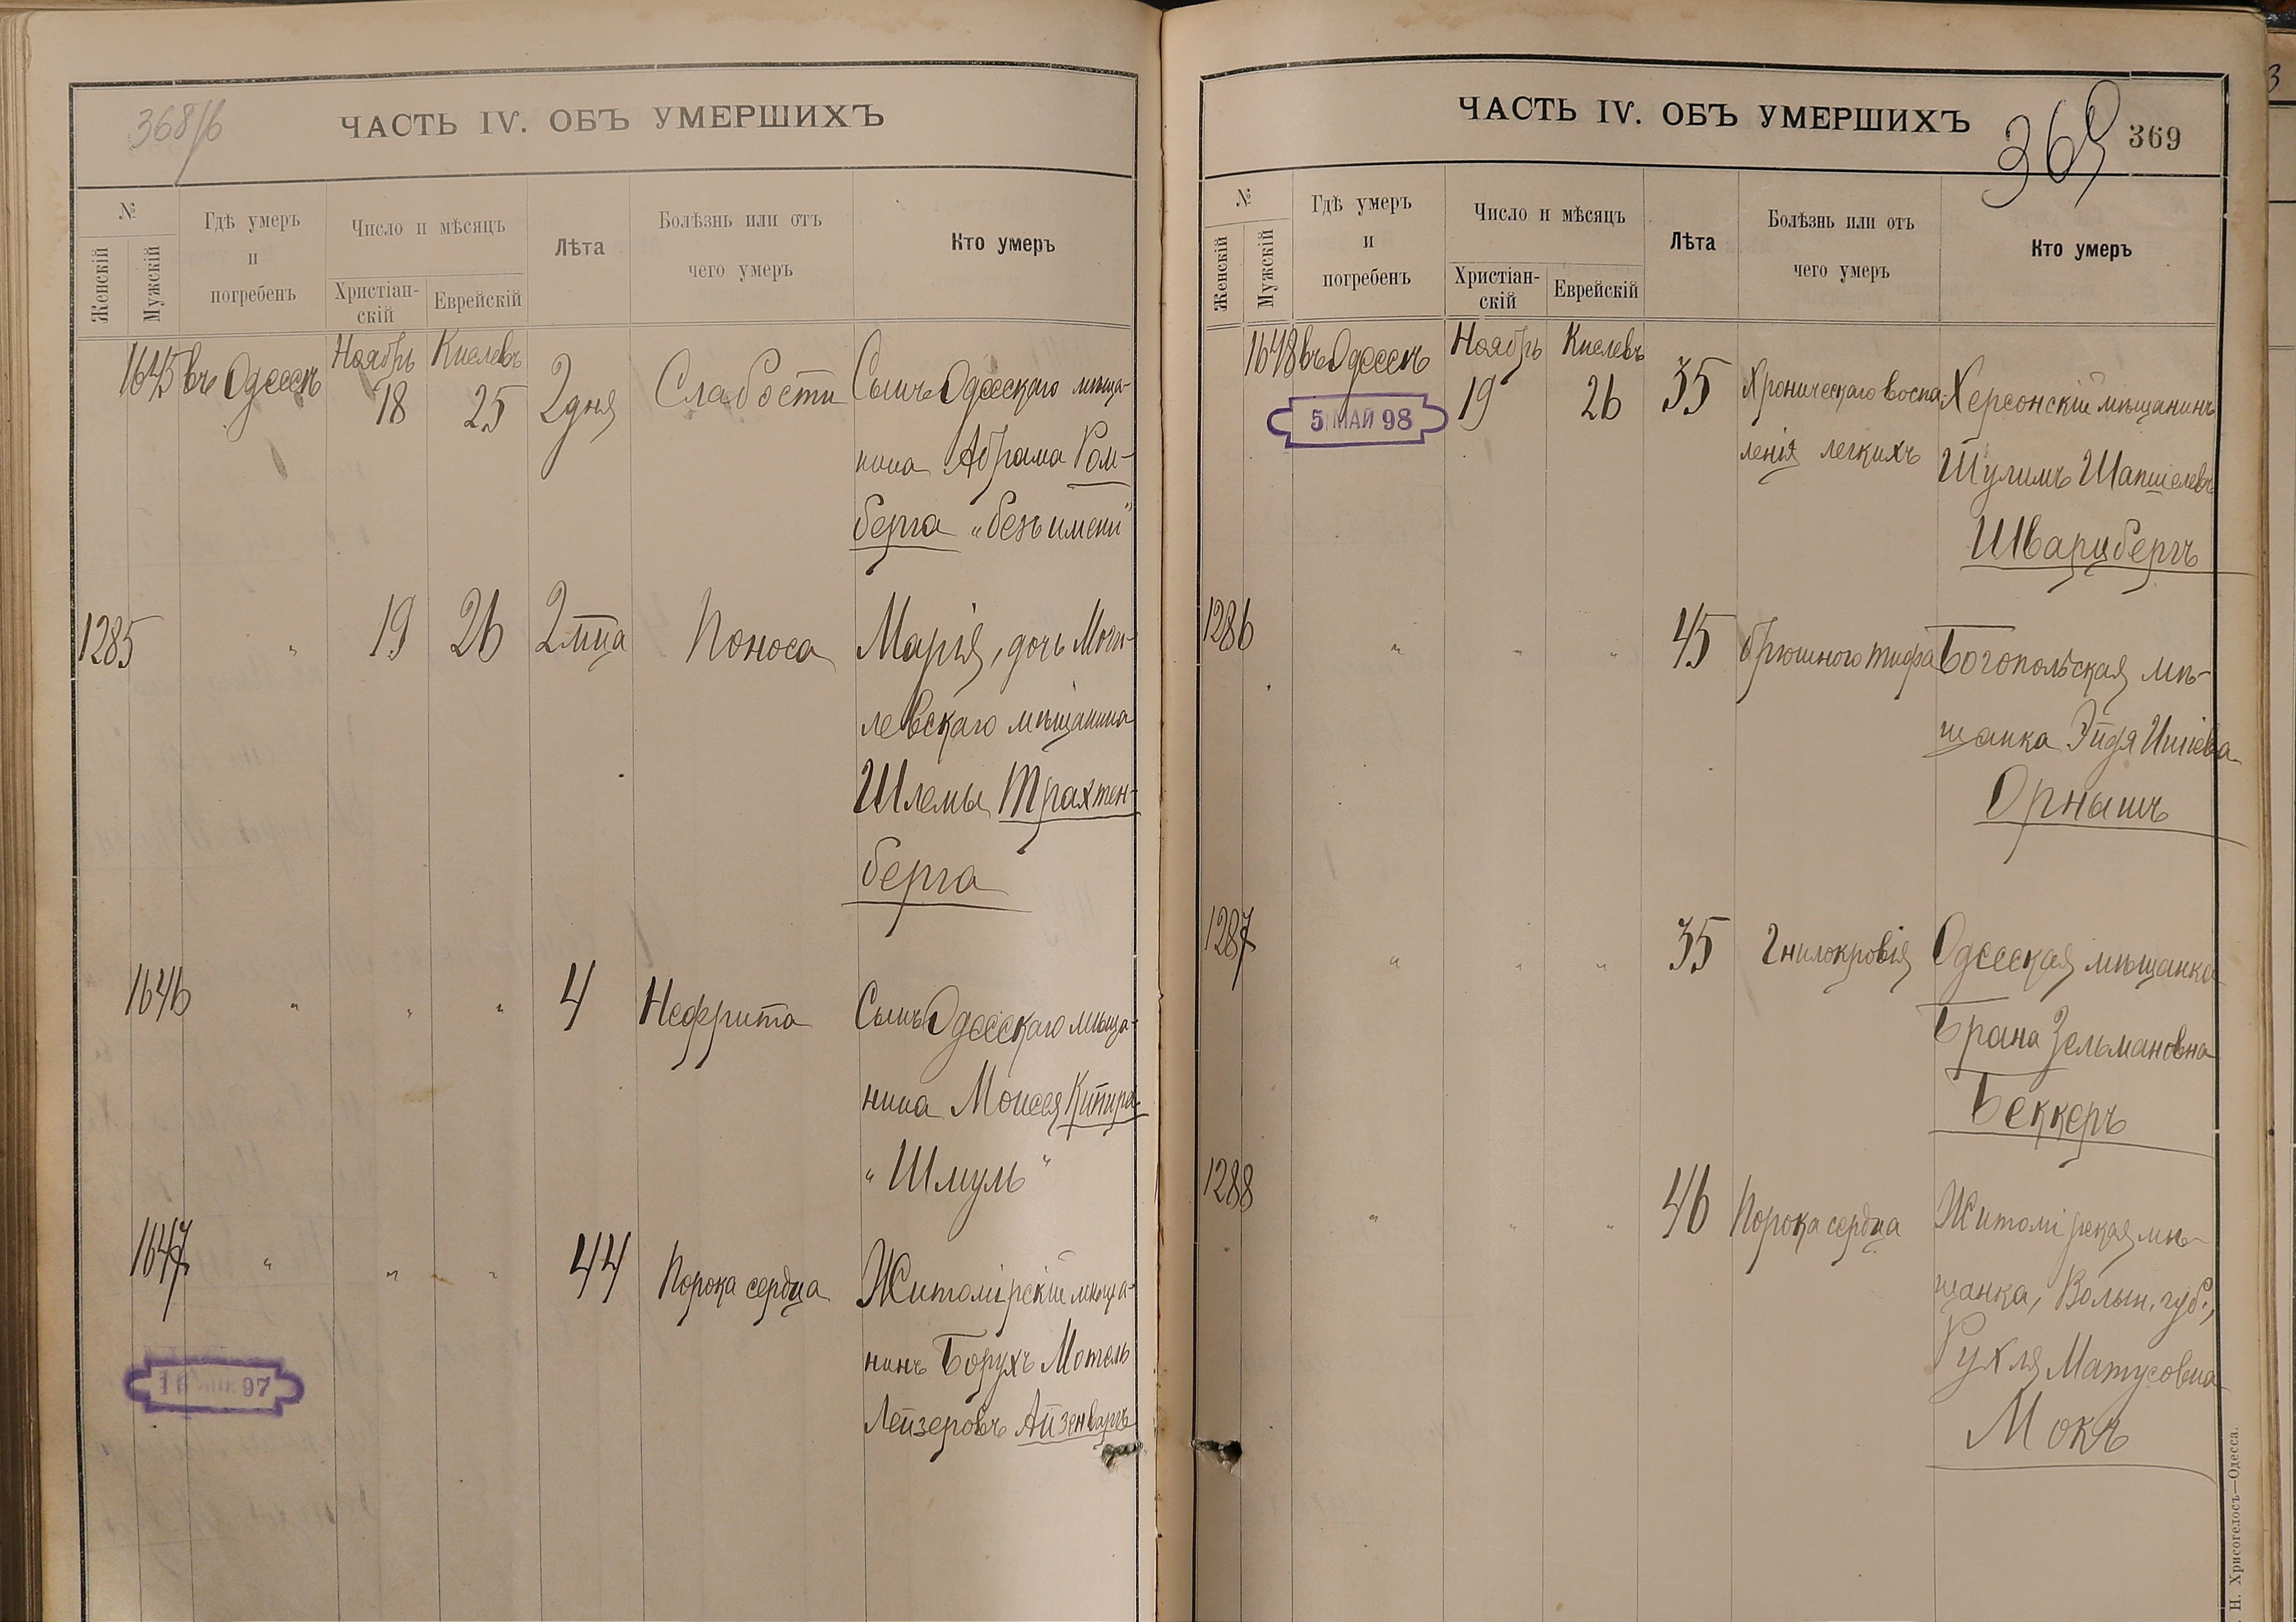 368/б
ЧАСТЬ IV. ОБЪ УМЕРШИХЪ
№
Женскій
Мужскій
Гдѣ умеръ
и
погребенъ
Число и мѣсяцъ
Христіан-
скій
Еврейскій
Лѣта
Болѣзнь или отъ
чего умеръ
Кто умеръ
1645 въ Одессѣ Ноябрь 18 Кислевъ 25 2 дня Слабости Сынъ Одесскаго мѣща-
нина Абрама Ром-
берга „безъ имени"
1285 " 19 26 2 мца Поноса Марія, дочь Моги-
левскаго мѣщанина
Шлемы Трахтен-
берга
1646 " " " 4 Нефрита Сынъ Одесскаго мѣща-
нина Моисея
„Шмуль"
1647 " " " 44 Порока сердца Житомірскій мѣща-
нинъ Борухъ Мотель
Лейзеровъ Айзенваргъ
97
ЧАСТЬ IV. ОБЪ УМЕРШИХЪ
369
369
№
Женскій
Мужскій
Гдѣ умеръ
и
погребенъ
Число и мѣсяцъ
Христіан-
скій
Еврейскій
Лѣта
Болѣзнь или отъ
чего умеръ
Кто умеръ
1648 въ Одессѣ Ноябрь 19 Кислевъ 26 35 Хроническаго воспа- Херсонскій мѣщанинъ
ленія легкихъ Шулимъ Шапшелевъ
Шварцбергъ
5 МАЙ 98
1286 " " " 45 брюшного тифа Богопольская мѣ-
щанка Эйдя Ишіева
Орнышъ
1287 " " " 35 Гнилокровія Одесская мѣщанка
Брана Зельмановна
Беккеръ
1288 " " " 46 Порока сердца Житомірская мѣ-
щанка, Волын. губ.,
Рухля Матусовна
Мокъ
Н. Хрисогелосъ—Одесса.